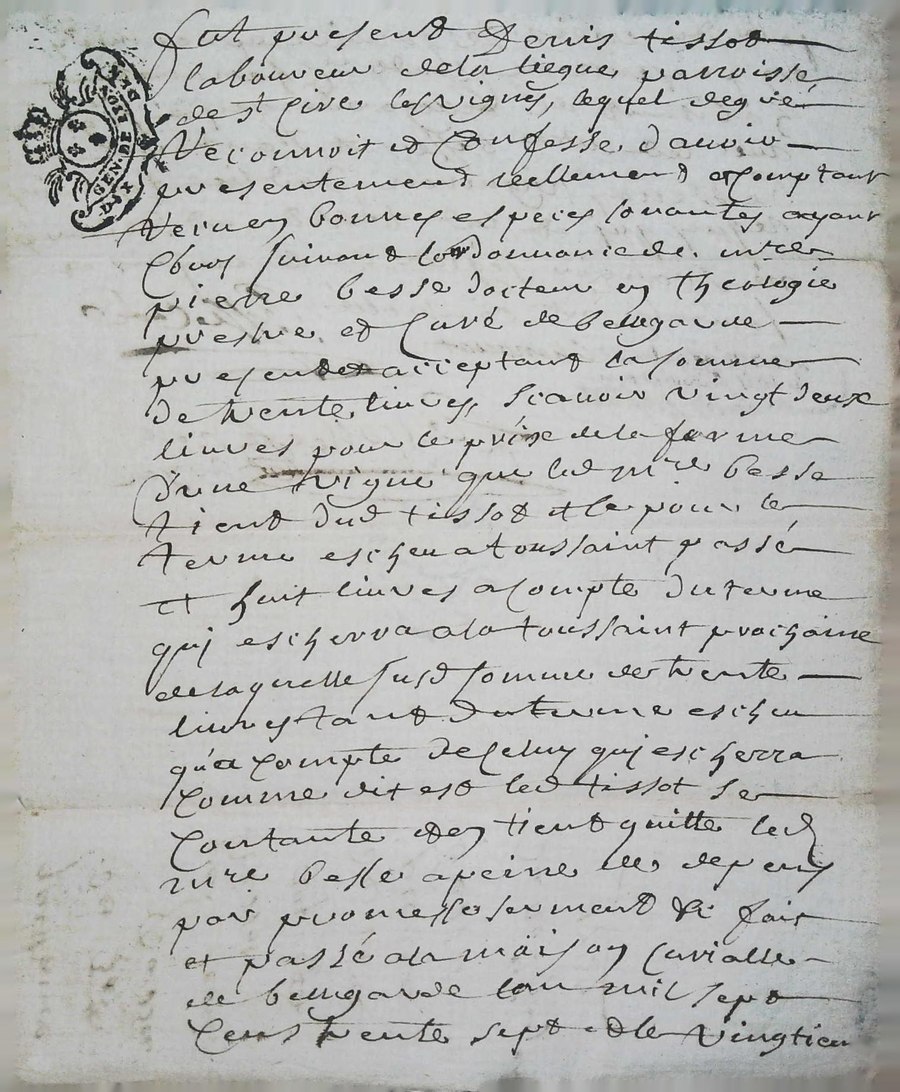 GEN. DE LYON
DIX DEN
fut present Denis tissot
laboureur de la liegue parroisse
de st Cire les vignes, lequel de gré
Reconnoit et Confesse d'avoir
presentement reellement et comptant
receu en bonnes especes sonantes ayant
Cours suivant l'ordonnance de mre
pierre besse docteur en Theologie
prestre et Curé de bellegarde
present et acceptant la somme
de trente livres, scavoir vingt deux
livres pour le prix de la ferme
d'une vigne que led mre besse
tient dud tissot et ce pour le
terme escheu a toussaint passé
et huit livres a Compte du terme
qui escherra a la toussaint prochaine
de laquelle susd somme de trente
livres tant du terme escheu
qu'a Compte de Celuy qui escherra
Comme dit est led tissot se
Contante et en tient quitte led
mre besse a peine de depens
par promesse serment &c fait
et passé a la maison Curialle
de bellegarde l'an mil sept
Cens trente sept et le vingtieme